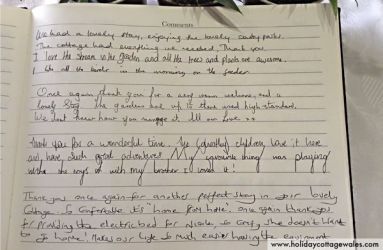 Comments
We had a lovely stay, enjoying the lovely early
The cottage had everything we needed. Thank you
I love the stream in the garden and all the trees and plants are awesome.
I like all the birds in the morning on the feeder
Once again thank you for a very warm welcome, and a
lovely stay. The gardens be up to there used high standard.
We don't know how you manage it. All our love xx
Thank you for a wonderful time. My children love it here
and have such great adventures. My favourite thing was playing
with the with my brother I loved it!
Thank you once again for another perfect stay in your lovely
Cottage. So Comfortable it's "home from home". once again thank you
for providing the electric bed for so Comfy she doesn't want to
go home! Makes our life so much easier having the equipment
www.holidaycottagewales.com